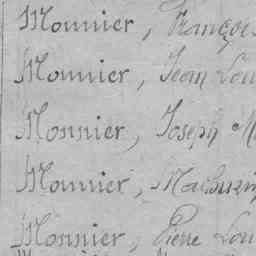 Monnier, François
Monnier, Jean Lou
Monnier, Joseph M
Monnier, Mathurin
Monnier, Pierre Lou